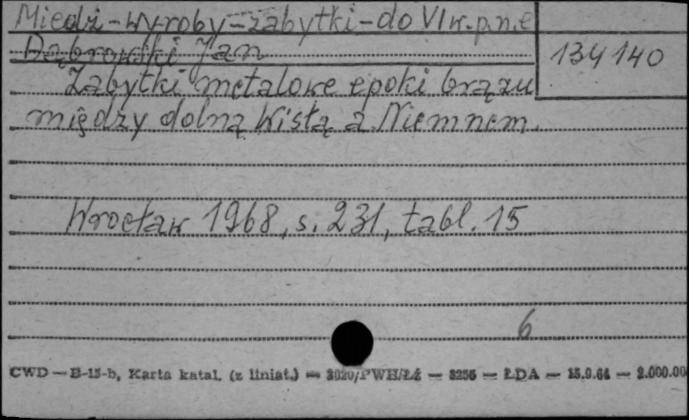 Miedź-wyroby-zabytki-do VI w. p.n.e
Dąbrowski Jan
134140
Zabytki metalowe epoki brązu
między dolną Wisłą a Niemnem.
Wrocław 1968, s. 231, tabl. 15
6
CWD — B-15-b, Karta katal. (z liniat.) — 3020/PWH/Łż — 3256 — ŁDA — 15.9.64 — 2.000.00